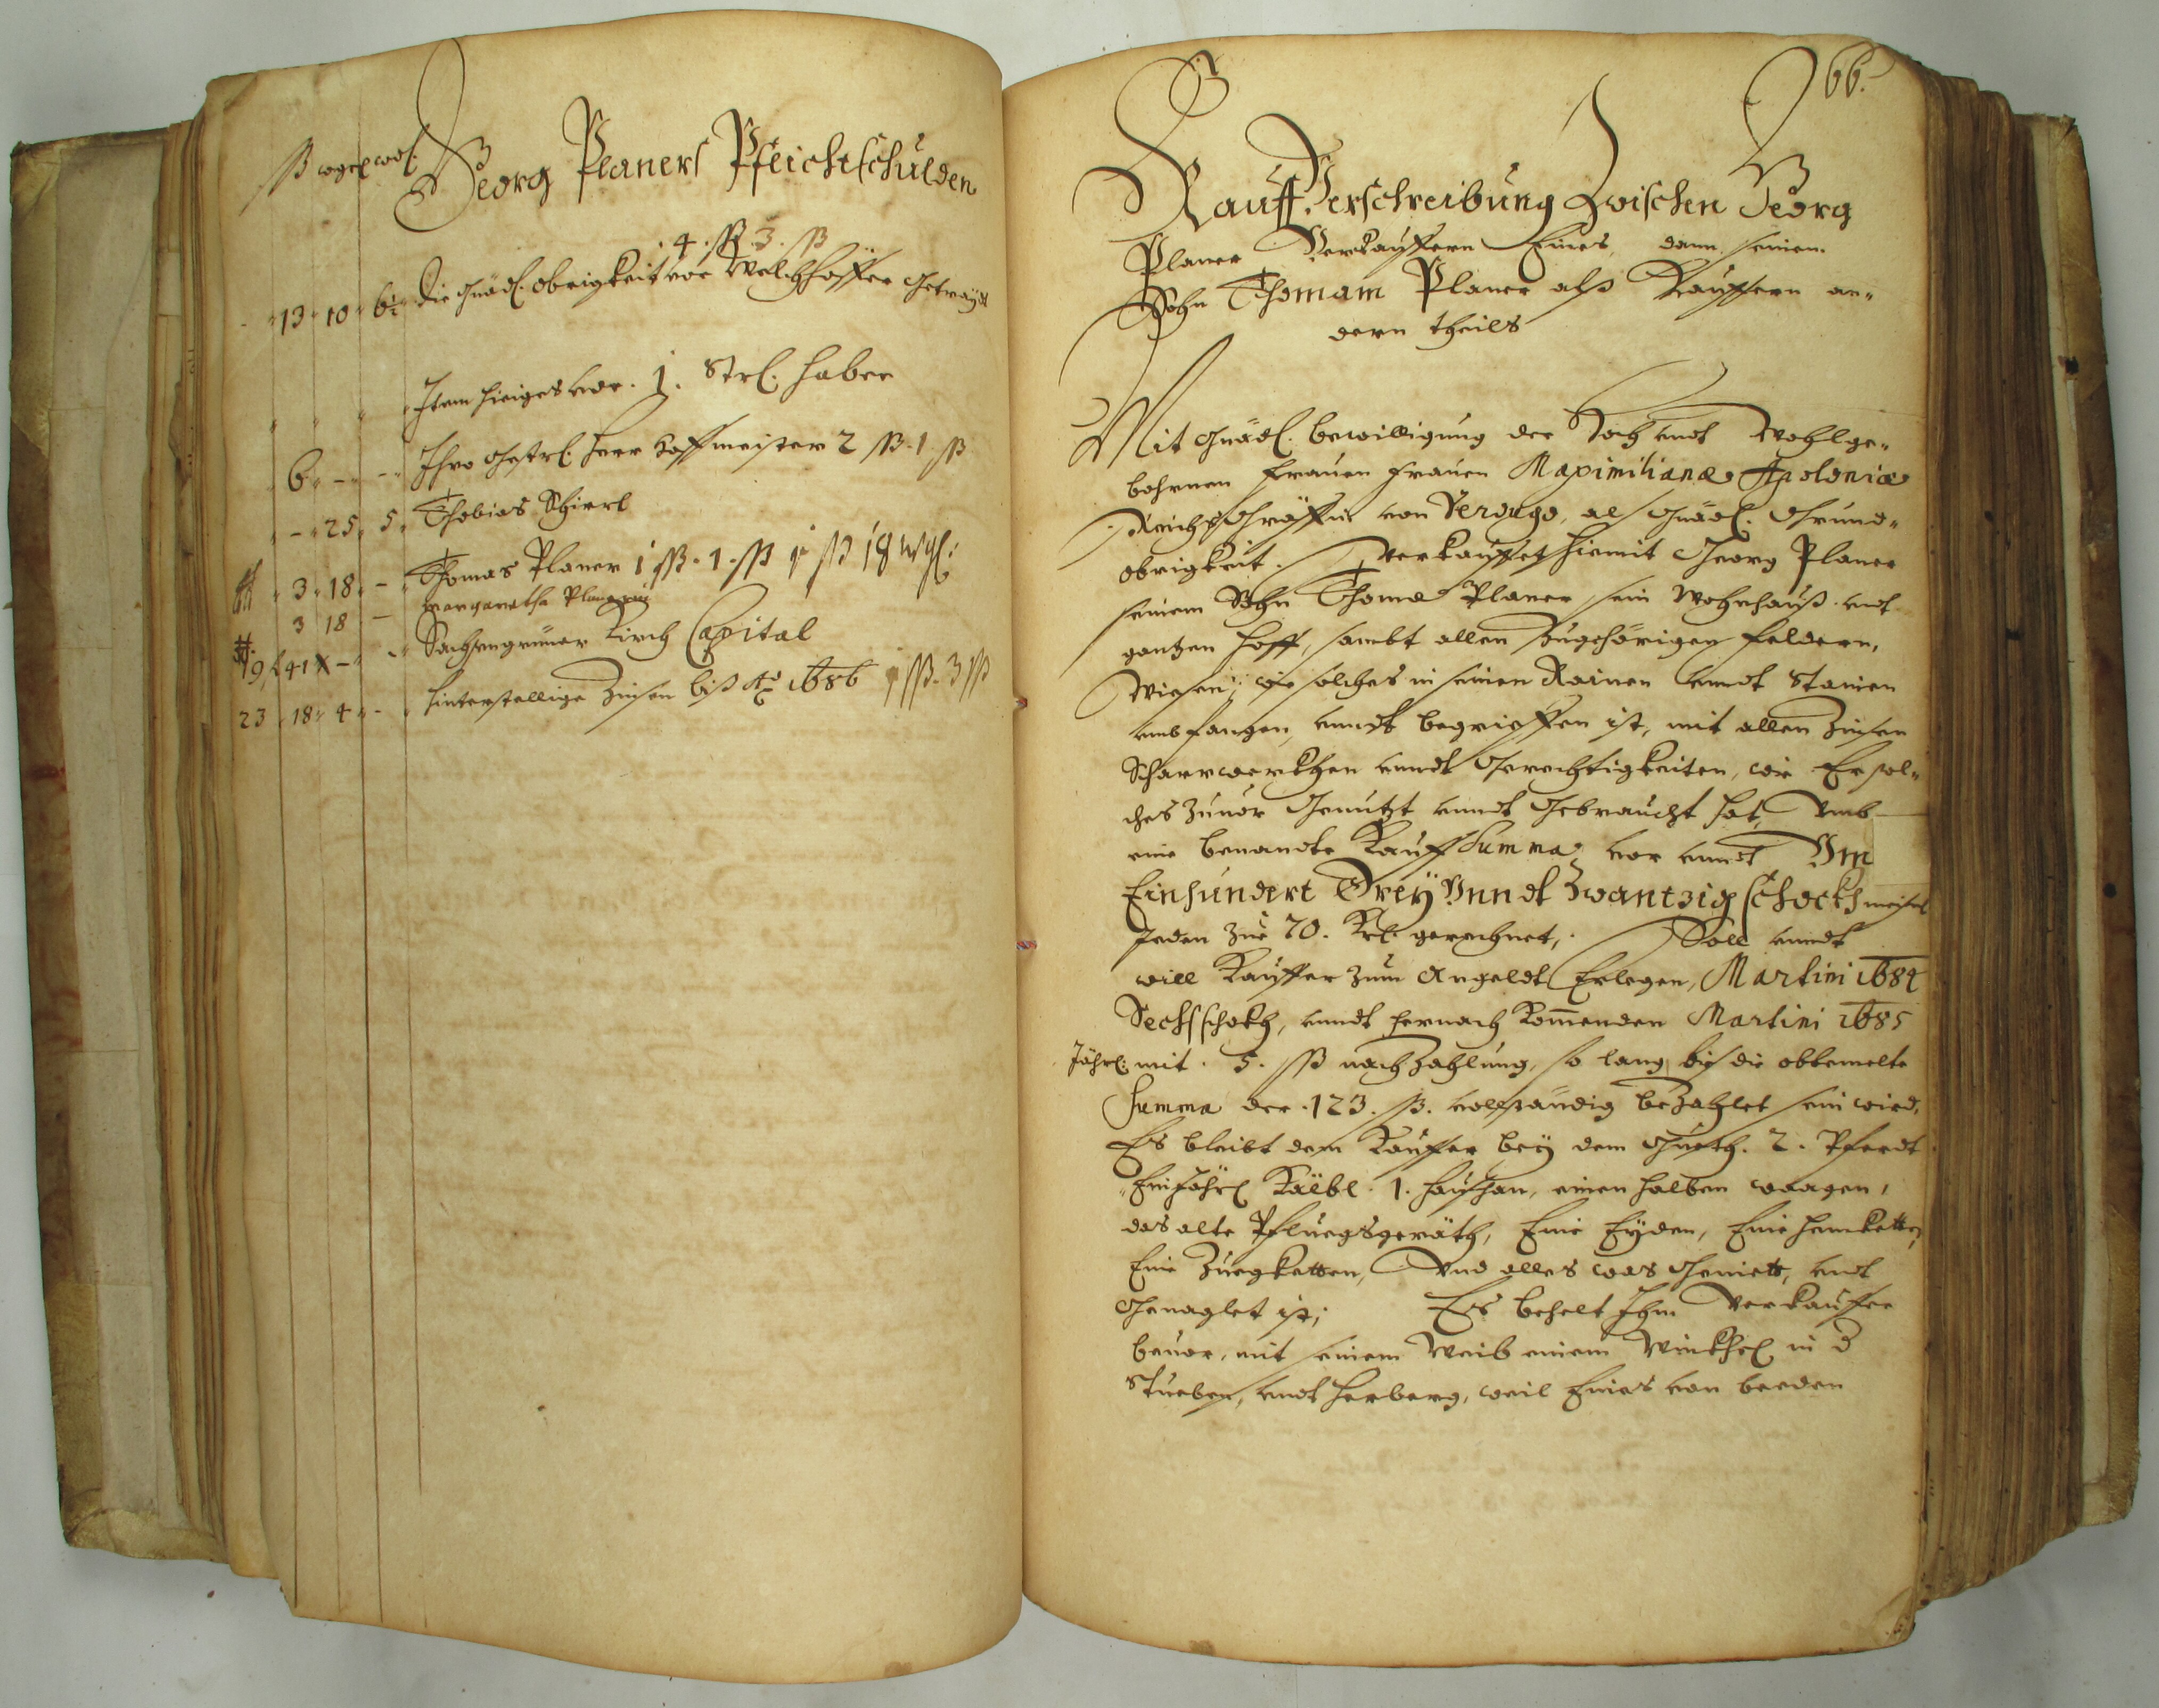 ß wgl wd. Georg Planers Pflichtschulden
4. ßß. 3. ß
13 10 6½ Die Gnädl. Obrigkeit vor Welchhoffer Getraydt
Item hieiges vor. 1. Strl. haber
6 – – Ihro Gestrl. Herr Hoffmeister 2 ßß. 1. ß
– 25 5 Thobias
3 18 – Thomas Planer 1 ßß. 1. ß 18 wgl:
3 18 – Margaretha Planerin
19 f 41 x – Sachsengrüner Kirch Capital
23 18 4 – hinterstellige Zinsen biß Ao 1686 ßß. 3 ß
66.
Kauff Verschreibung Zwischen Georg
Planer Verkauffern Eines, dann seinen
Sohn Thomam Planer alß Kauffern an„
dern theils
Mit Gnädl. bewilligung der Hoch undt Wohlge„
bohrnen Frauen Frauen Maximilianæ Apoloniæ
Reichs Gräffin von Verdugo, als Gnädl. Grund„
obrigkeit. Verkauffet hiemit Georg Planer
seinem Sohn Thoma Planer, sein Wohnhauß undt
gantzen Hoff, sambt allen zugehörigen feldern,
Wiesen, wie solches in seinen Rainen unndt Stainen
umbfangen, unndt begrieffen ist, mit allen Zinsen
Scharrwerkhen unndt Gerechtigkeiten, wie Er sol„
ches Zuuor Genutzt unndt Gebraucht hat, Vmb
eine benandte Kauff Summa, vor unndt Vm
Einhundert Drey Vnndt Zwantzig schockh meisnl
Jeden zue 70. Krl. gerechnet, Soll unndt
will Kauffer zum Angeldt Erlegen, Martini 1684
Sechs schockh, unndt hernach Kommenden Martini 1685
Jährl. mit. 5. ßß nachzahlung, so lang, bis die obbemelte
Summa der. 123. ß. vollständig bezahlet sein wird,
Es bleibt dem Kauffer bey dem Gueth. 2. Pferdt
Einjährl Kälbl. 1. einen halben waagen,
das alte Pfluegsgeräth, Eine Eyden, Eine hemketten,
Eine Zuegketten, Vnd alles was Geniett, undt
Genaglet ist, Es behelt Ihm Verkauffer
beuor, mit seinem Weib einem Winkhel in d
Stueben, undt herberg, weil Eines von beeden